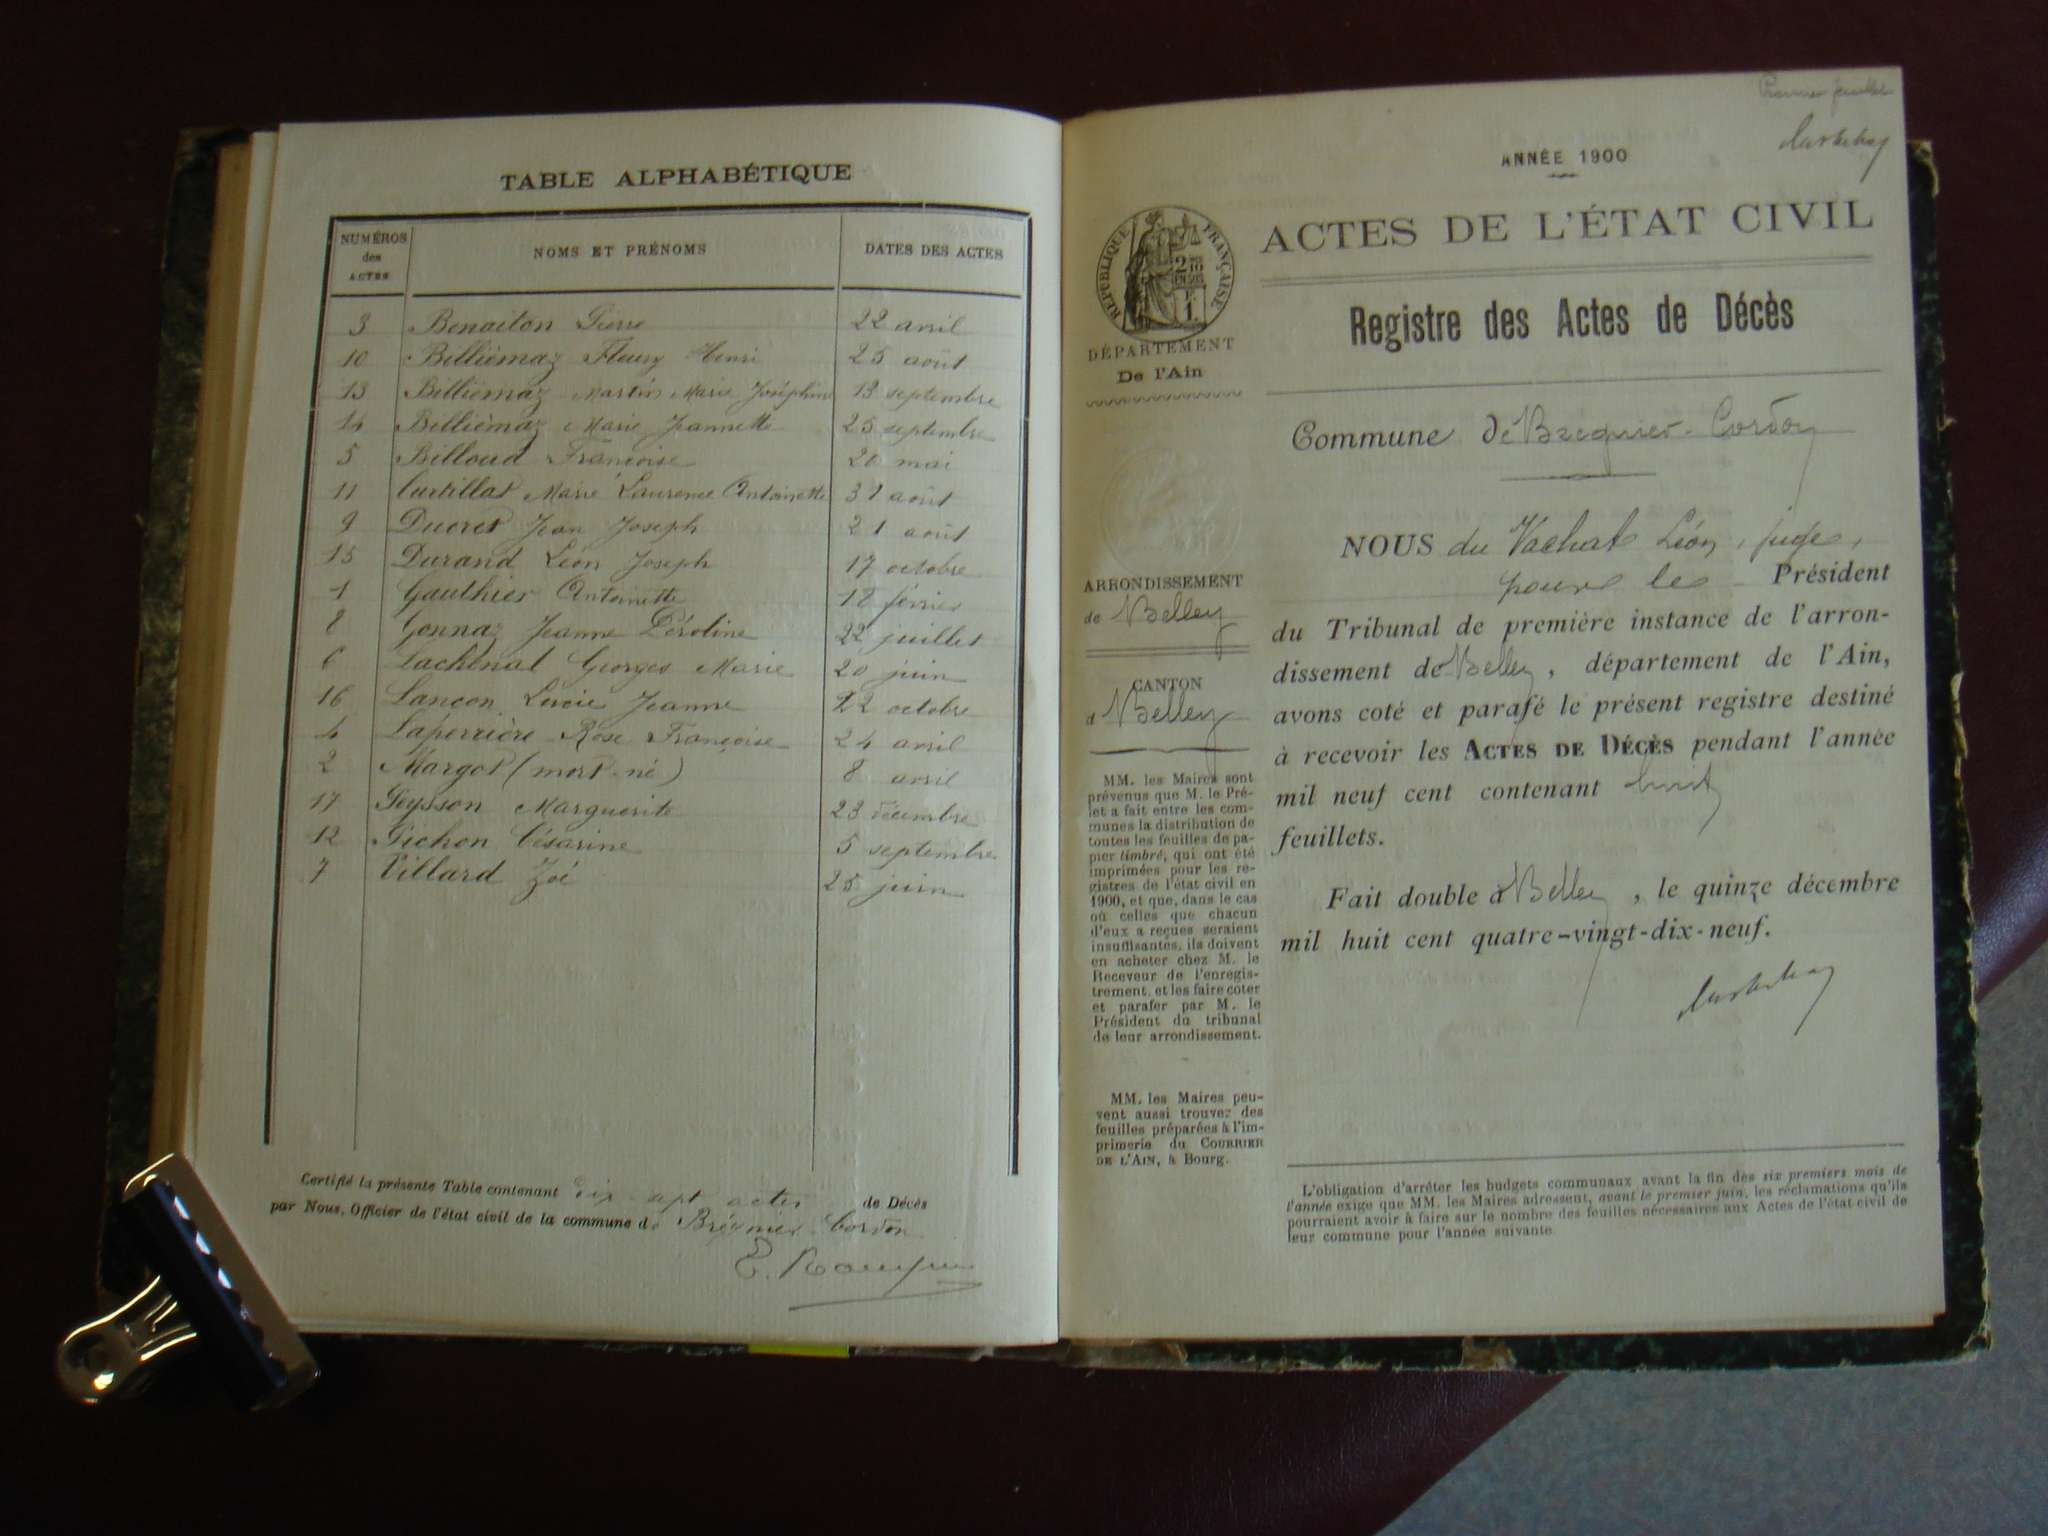 TABLE ALPHABÉTIQUE
NUMÉROS des ACTES NOMS ET PRÉNOMS DATES DES ACTES
3 Benaiton Pierre 22 avril
10 Billiémaz Fleury Henri 25 août
13 Billiémaz Martin Marie Joséphine 13 septembre
14 Billiémaz Marie Jeannette 25 septembre
5 Billoud Françoise 20 mai
11 Curtillat Marie Laurence Antoinette 31 août
9 Ducret Jean Joseph 21 août
15 Durand Léon Joseph 17 octobre
1 Gauthier Antoinette 18 février
8 Gonnaz Jeanne Péroline 22 juillet
6 Lachenal Georges Marie 20 juin
16 Lançon Lucie Jeanne 22 octobre
4 Laperrière Rose Françoise 24 avril
2 Margot (mort-né) 8 avril
17 Peysson Marguerite 23 décembre
12 Pichon Césarine 5 septembre
7 Villard Zoé 25 juin
Certifié la présente Table contenant dix sept actes de Décès
par Nous, Officier de l'état civil de la commune de Brégnier-Cordon
Premier feuillet
ANNÉE 1900
ACTES DE L'ÉTAT CIVIL
RÉPUBLIQUE FRANÇAISE
DÉPARTEMENT
De l'Ain
Registre des Actes de Décès
Commune de Bregnier-Cordon
ARRONDISSEMENT
de Belley
CANTON
d Belley
MM. les Maires sont
prévenus que M. le Pré-
fet a fait entre les com-
munes la distribution de
toutes les feuilles de pa-
pier timbré, qui ont été
imprimées pour les re-
gistres de l'état civil en
1900, et que, dans le cas
où celles que chacun
d'eux a reçues seraient
insuffisantes, ils doivent
en acheter chez M. le
Receveur de l'enregis-
trement, et les faire coter
et parafer par M. le
Président du tribunal
de leur arrondissement.
MM. les Maires peu-
vent aussi trouver des
feuilles préparées à l'im-
primerie du COURRIER
DE L'AIN, à Bourg.
NOUS du Vachat Léon, juge,
pour le Président
du Tribunal de première instance de l'arron-
dissement de Belley, département de l'Ain,
avons coté et parafé le présent registre destiné
à recevoir les ACTES DE DÉCÈS pendant l'année
mil neuf cent contenant huit
feuillets.
Fait double à Belley, le quinze décembre
mil huit cent quatre-vingt-dix-neuf.
L'obligation d'arrêter les budgets communaux avant la fin des six premiers mois de
l'année exige que MM. les Maires adressent, avant le premier juin, les réclamations qu'ils
pourraient avoir à faire sur le nombre des feuilles nécessaires aux Actes de l'état-civil de
leur commune pour l'année suivante.